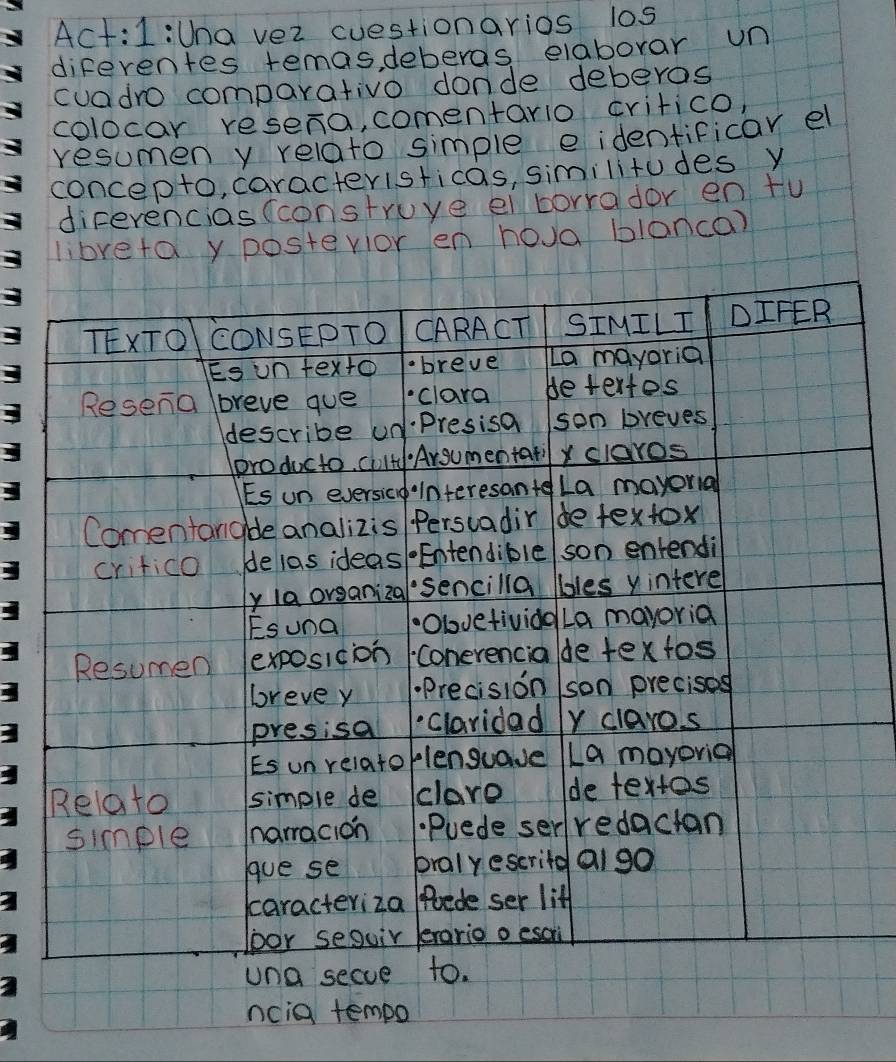 Act:1:Una vez cuestionarios los
diferentes temas, deberas elaborar un
cuadro comparativo donde deberas
colocar reseña, comentario critico,
resumen y relato simple e identificar el
concepto, caracteristicas, similitudes y
diferencias (construye el borrador en tu
libreta y posterior en hoja blanca)
TEXTO CONSEPTO CARACT SIMILI DIFER
Es un texto •breve La mayoria
Reseña breve que •clara de textos
describe un •Presisa son breves
producto. cult •Argumentati y claros
Es un eversicio •Interesante La mayoria
Comentario de analizis •Persuadir de textox
critico de las ideas •Entendible son entendi
y la organiza •sencilla bles y intere
Es una •Objetivida La mayoria
Resumen exposición •Coherencia de textos
breve y •Precisión son precisos
presisa •claridad y claros
Es un relato •lenguaje La mayoria
Relato simple de claro de textos
simple narración •Puede ser redactan
que se oral y escrito algo
caracteriza Puede ser lit
por seguir erario o escri
una secue to.
ncia tempo